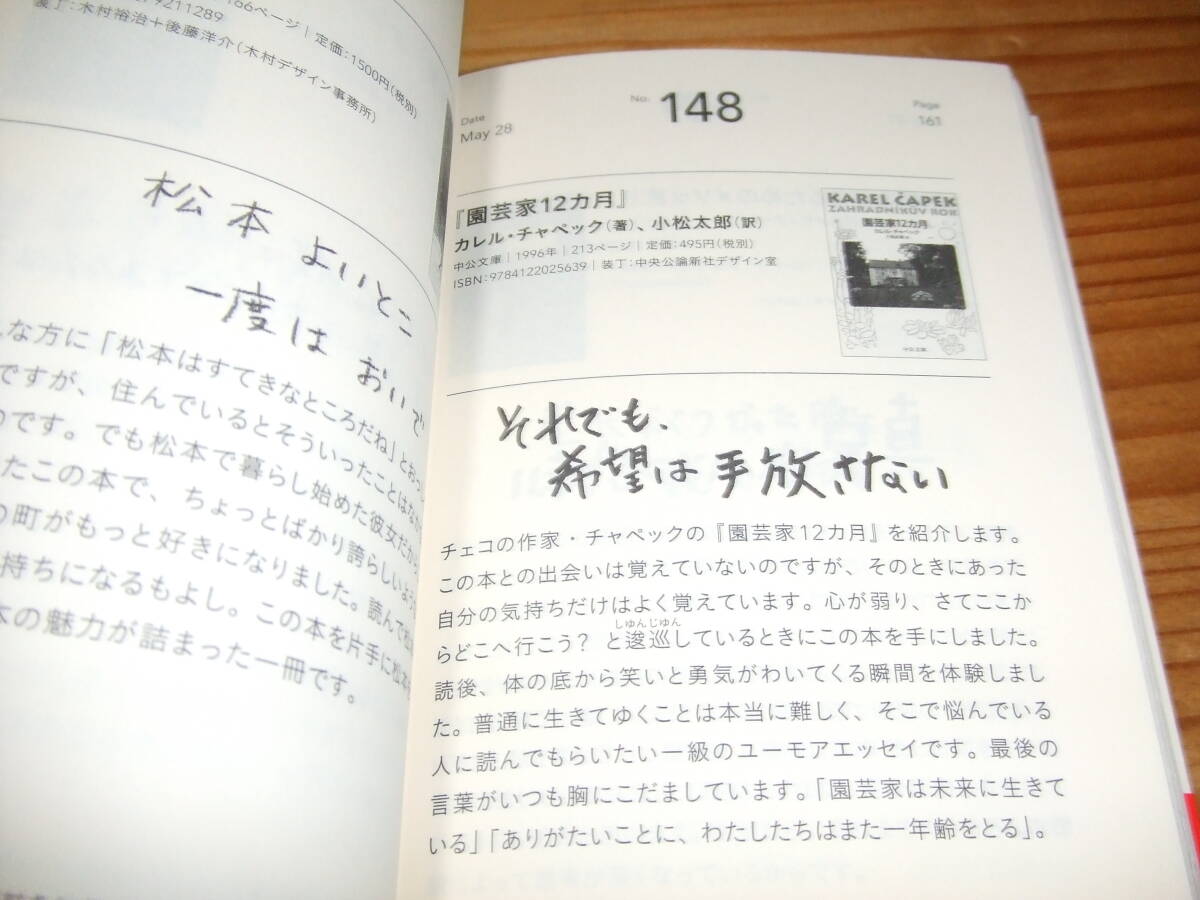 166ページ｜定価：1500円（税別）
9211289
装丁：木村裕治＋後藤洋介（木村デザイン事務所）
松本 よいとこ
一度は おいで
な方に「松本はすてきなところだね」とおっし
ですが、住んでいるとそういったことは
のです。でも松本で暮らし始めた彼女だから
たこの本で、ちょっとばかり誇らしいよう
の町がもっと好きになりました。読んで
持ちになるもよし。この本を片手に松本
本の魅力が詰まった一冊です。
Date
May 28
No.
148
Page
161
『園芸家12カ月』
カレル・チャペック（著）、小松太郎（訳）
中公文庫｜1996年｜213ページ｜定価：495円（税別）
ISBN：9784122025639｜装丁：中央公論新社デザイン室
KAREL ČAPEK
ZAHRADNÍKŮV ROK
園芸家12カ月
カレル・チャペック
中公文庫
それでも、
希望は手放さない
チェコの作家・チャペックの『園芸家12カ月』を紹介します。
この本との出会いは覚えていないのですが、そのときにあった
自分の気持ちだけはよく覚えています。心が弱り、さてここか
しゅんじゅん
らどこへ行こう？ と逡巡しているときにこの本を手にしました。
読後、体の底から笑いと勇気がわいてくる瞬間を体験しまし
た。普通に生きてゆくことは本当に難しく、そこで悩んでいる
人に読んでもらいたい一級のユーモアエッセイです。最後の
言葉がいつも胸にこだましています。「園芸家は未来に生きて
いる」「ありがたいことに、わたしたちはまた一年齢をとる」。